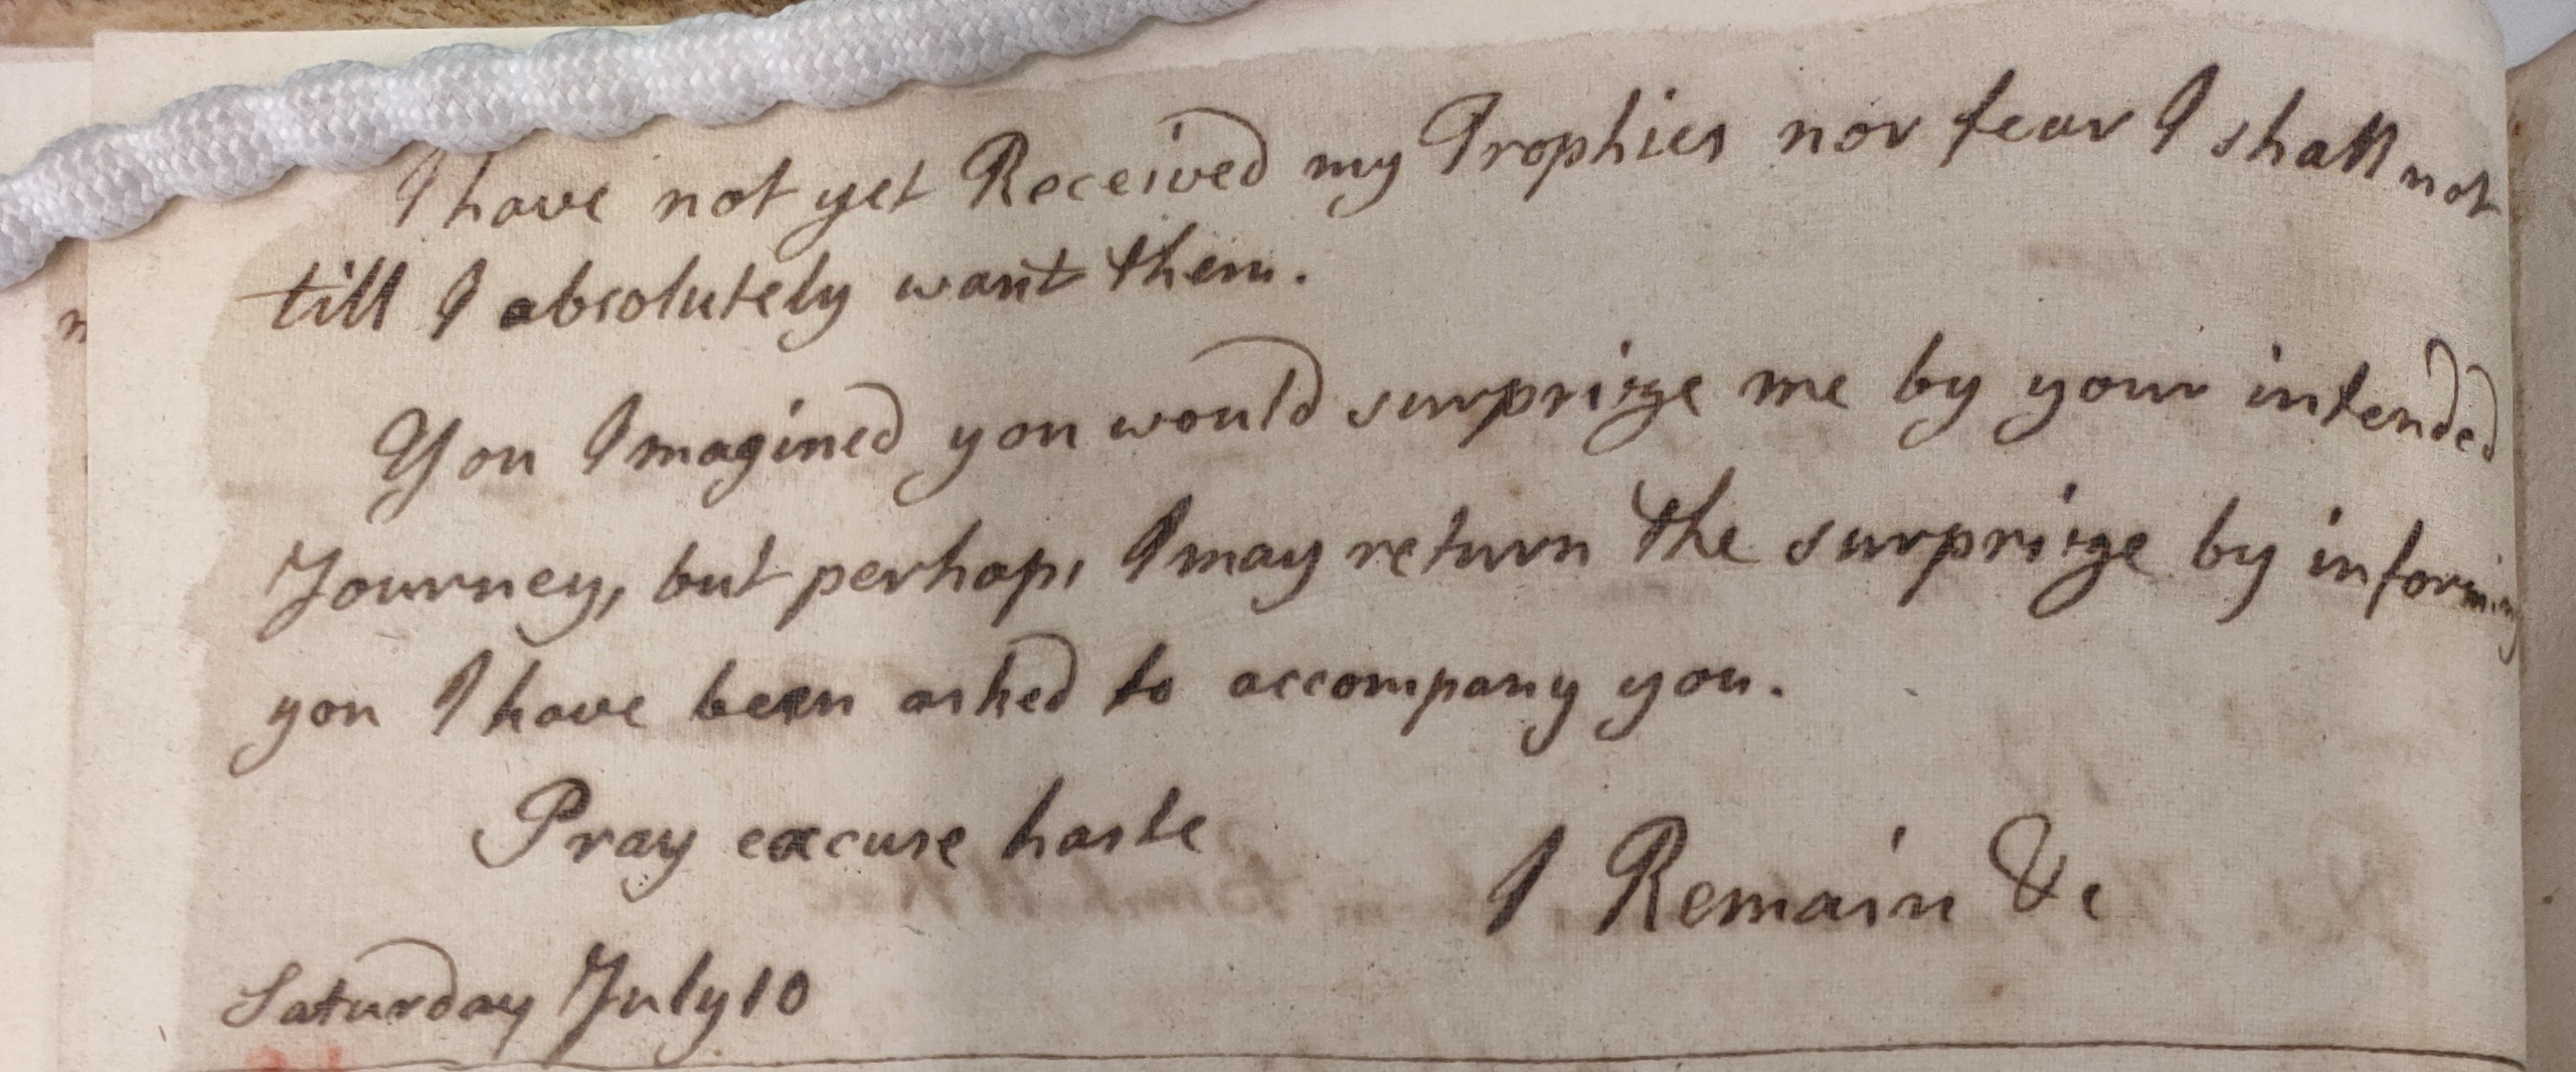 I have not yet Received my Trophies nor fear I shall not
till I absolutely want them.
You Imagined you would surprize me by your intended
Journey, but perhaps I may return the surprize by informing
you I have been asked to accompany you.
Pray excuse haste
I Remain &c
Saturday July 10